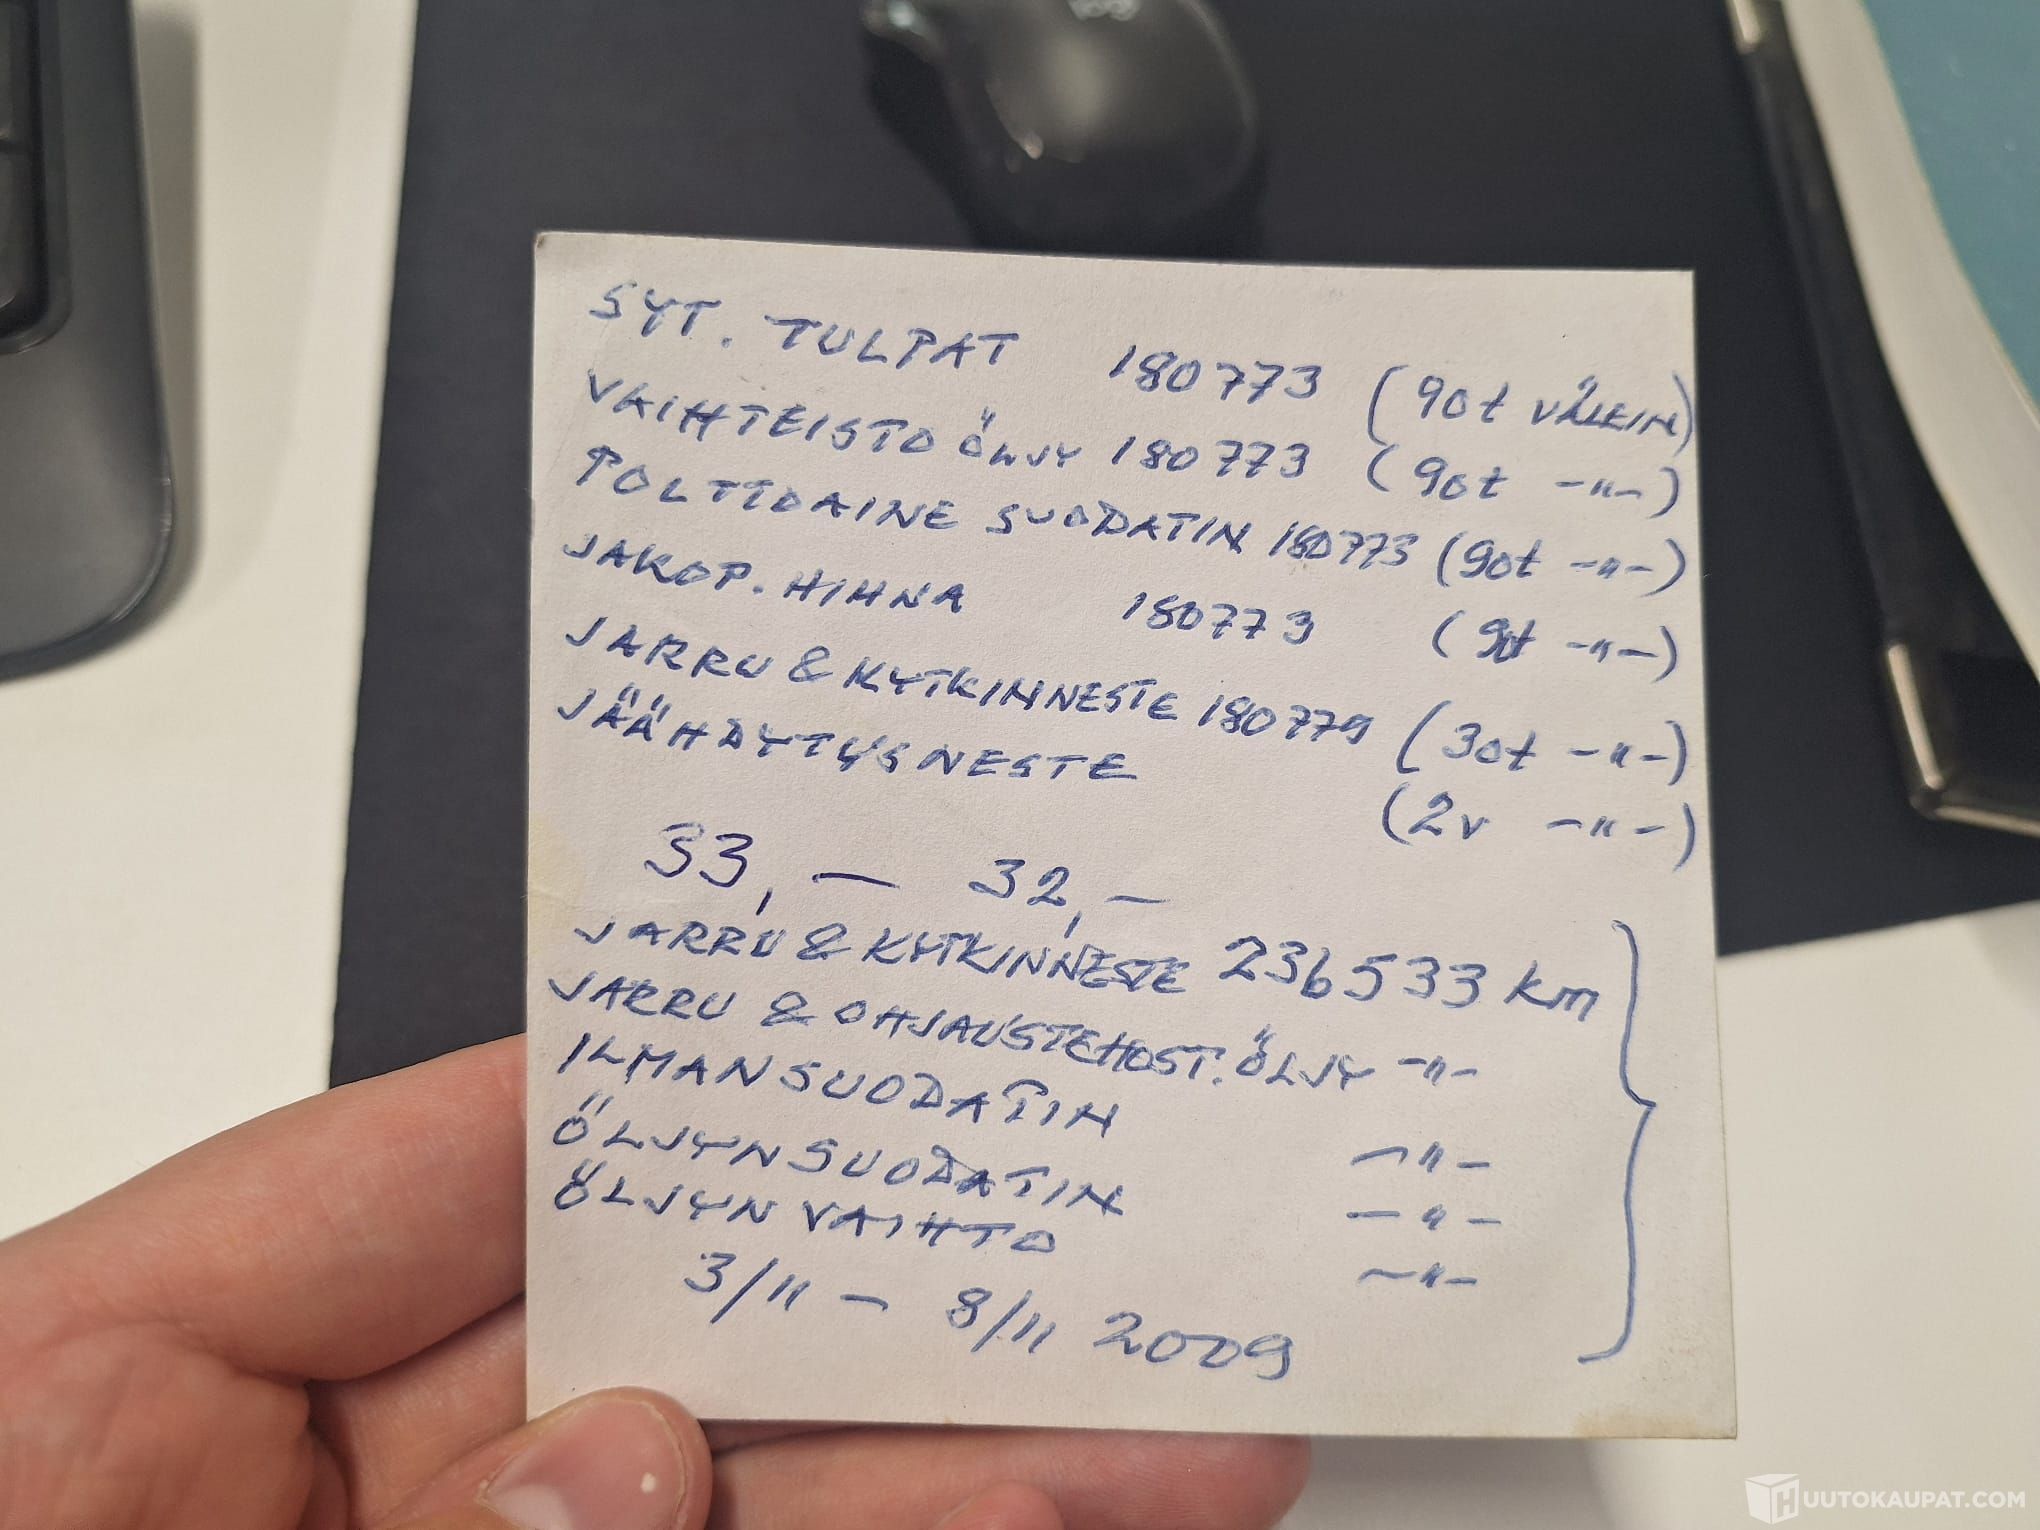 SYT. TULPAT 180773 (90t VÄLEIN)
VAIHTEISTO ÖLJY 180773 (90t -"-)
POLTTOAINE SUODATIN 180773 (90t -"-)
JAKOP. HIHNA 180773 (90t -"-)
JARRU & KYTKINNESTE 180779 (30t -"-)
JÄÄHDYTYSNESTE (2v -"-)
33,- 32,-
JARRU & KYTKINNESTE 236533 km
JARRU & OHJAUSTEHOST. ÖLJY -"-
ILMANSUODATIN -"-
ÖLJYNSUODATIN -"-
ÖLJYN VAIHTO -"-
3/11 - 8/11 2009
HUUTOKAUPAT.COM